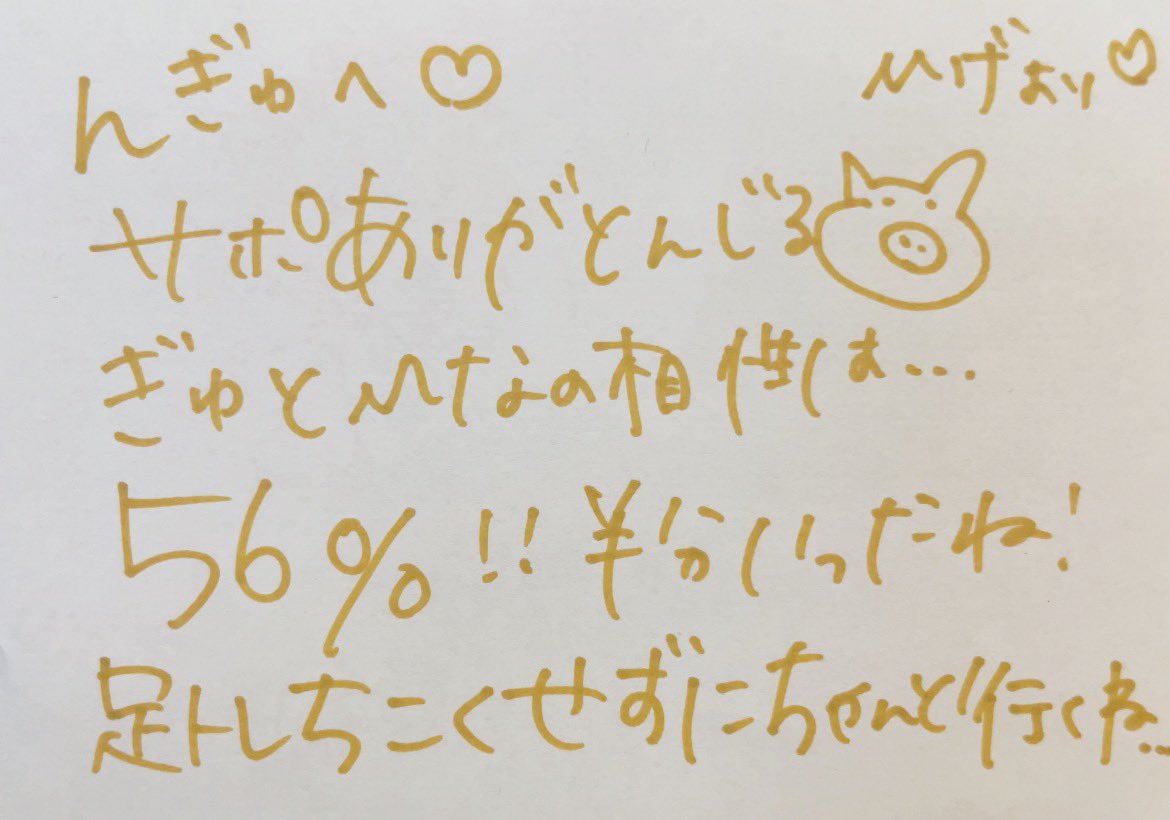 んぎゅへ♡
Mげより♡
サポありがとんじる
ぎゅとMなの相性は…
56%!!半分いったね!
足トレちこくせずにちゃんと行くね…